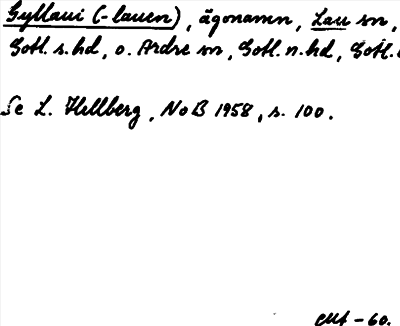 Gyllaui (-lauen), ägonamn, Lau sn,
Gotl. s. hd, o. Ardre sn, Gotl. n. hd, Gotl.
Se L. Hellberg, NoB 1958, s. 100.
-60.